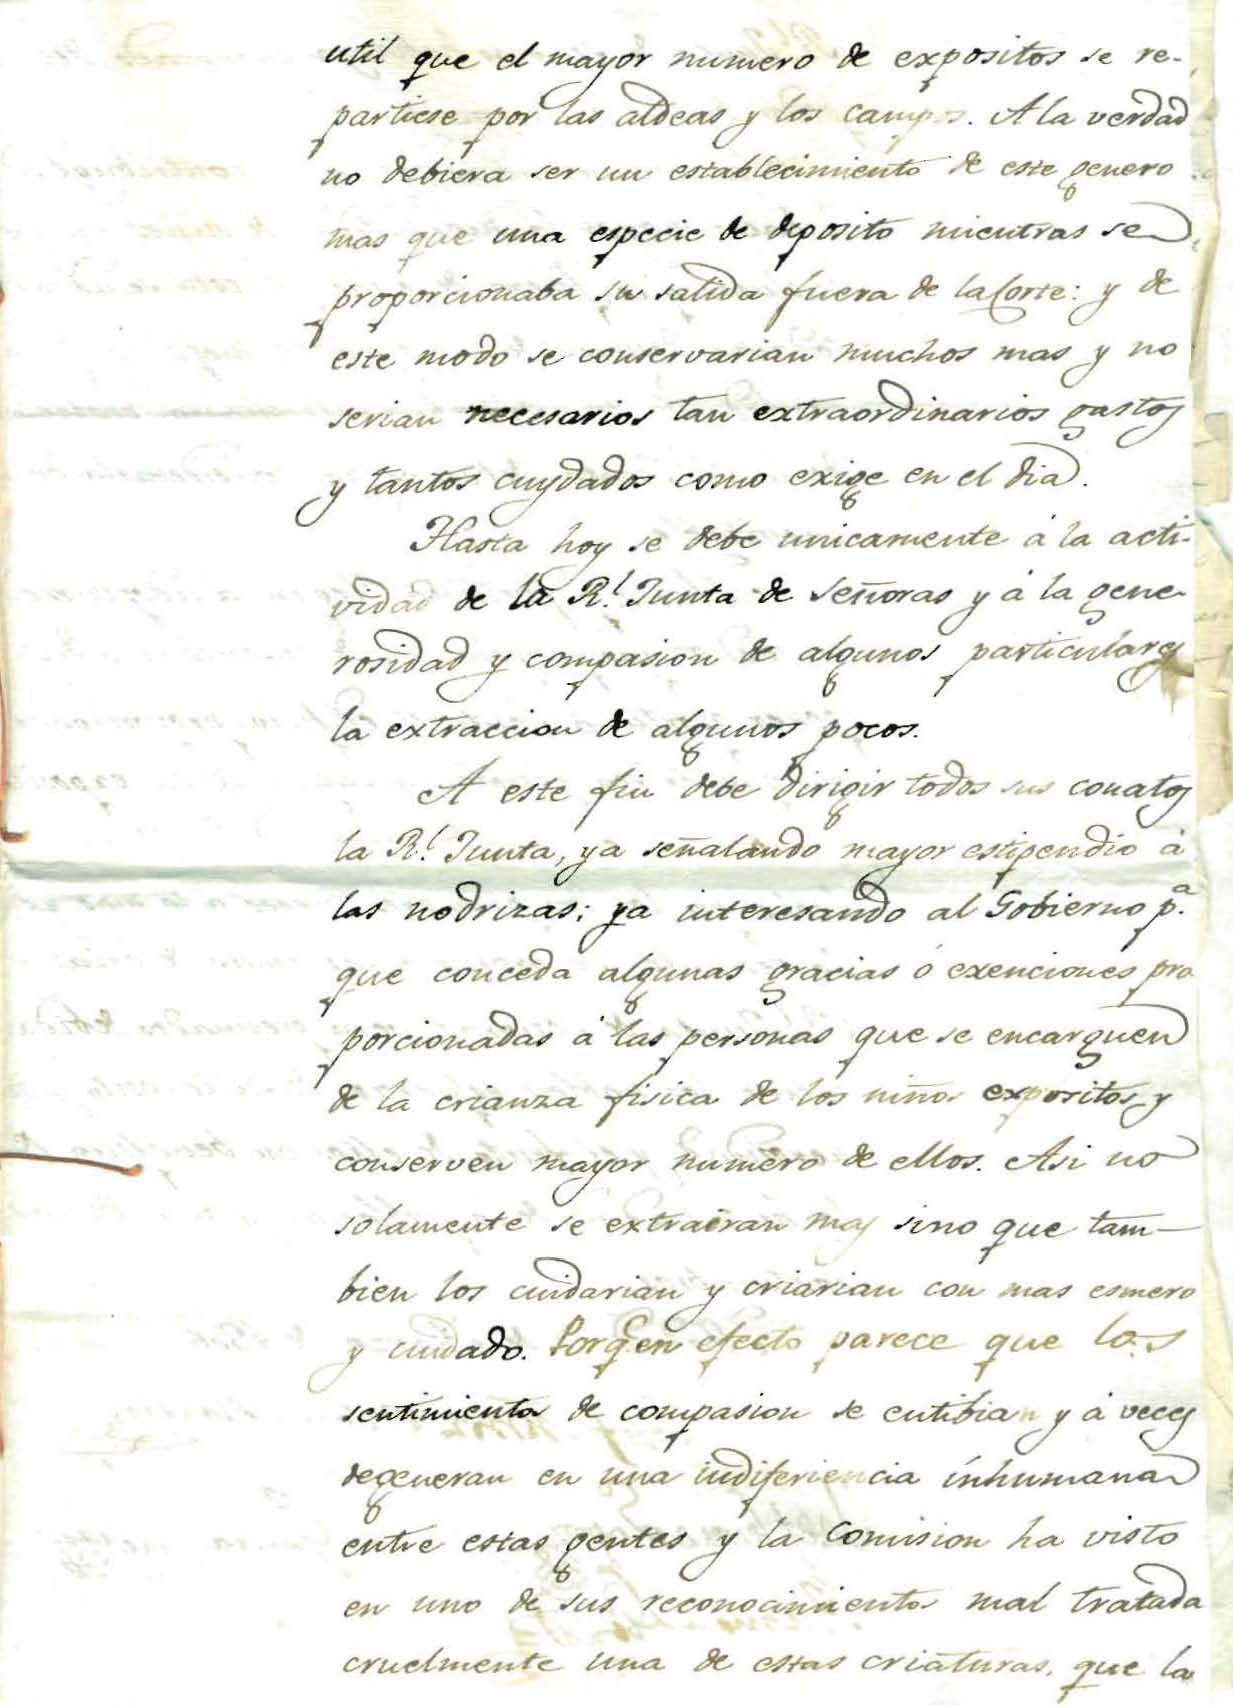 util que el mayor numero de expositos se re-
partiese por las aldeas y los campos. A la verdad
no debiera ser un establecimiento de este genero
mas que una especie de deposito mientras se
proporcionaba su salida fuera de la Corte: y de
este modo se conservarian muchos mas y no
serian necesarios tan extraordinarios gastos
y tantos cuydados como exige en el dia.
Hasta hoy se debe unicamente á la acti-
vidad de la Rl. Junta de Señoras y á la gene-
rosidad y compasion de algunos particulares
la extraccion de algunos pocos.
A este fin debe dirigir todos sus conatos
la Rl. Junta, ya señalando mayor estipendio á
las nodrizas; ya interesando al Gobierno pa.
que conceda algunas gracias ó exenciones pro
porcionadas á las personas que se encarguen
de la crianza fisica de los niños expositos y
conserven mayor numero de ellos. Asi no
solamente se extraeran mas sino que tam-
bien los cuidarian y criarian con mas esmero
y cuidado. Porq. en efecto parece que los
sentimientos de compasion se entibian y á veces
degeneran en una indiferiencia inhumana
entre estas gentes y la Comision ha visto
en uno de sus reconocimientos mal tratada
cruelmente una de estas criaturas, que la